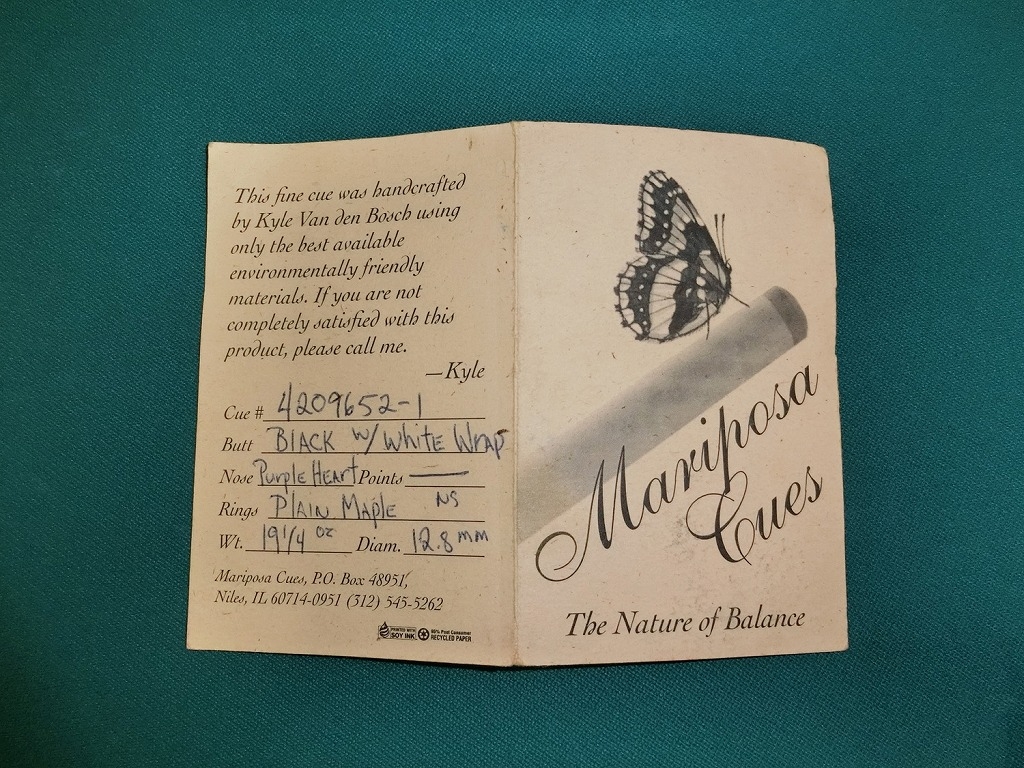 This fine cue was handcrafted
by Kyle Van den Bosch using
only the best available
environmentally friendly
materials. If you are not
completely satisfied with this
product, please call me.
—Kyle
Cue # 4209652-1
Butt BLACK w/ White Wrap
Nose Purple Heart Points —
Rings Plain Maple NS
Wt. 19 1/4 oz Diam. 12.8 mm
Mariposa Cues, P.O. Box 48951,
Niles, IL 60714-0951 (312) 545-5262
PRINTED WITH
SOY INK
Post Consumer
RECYCLED PAPER
Mariposa
Cues
The Nature of Balance